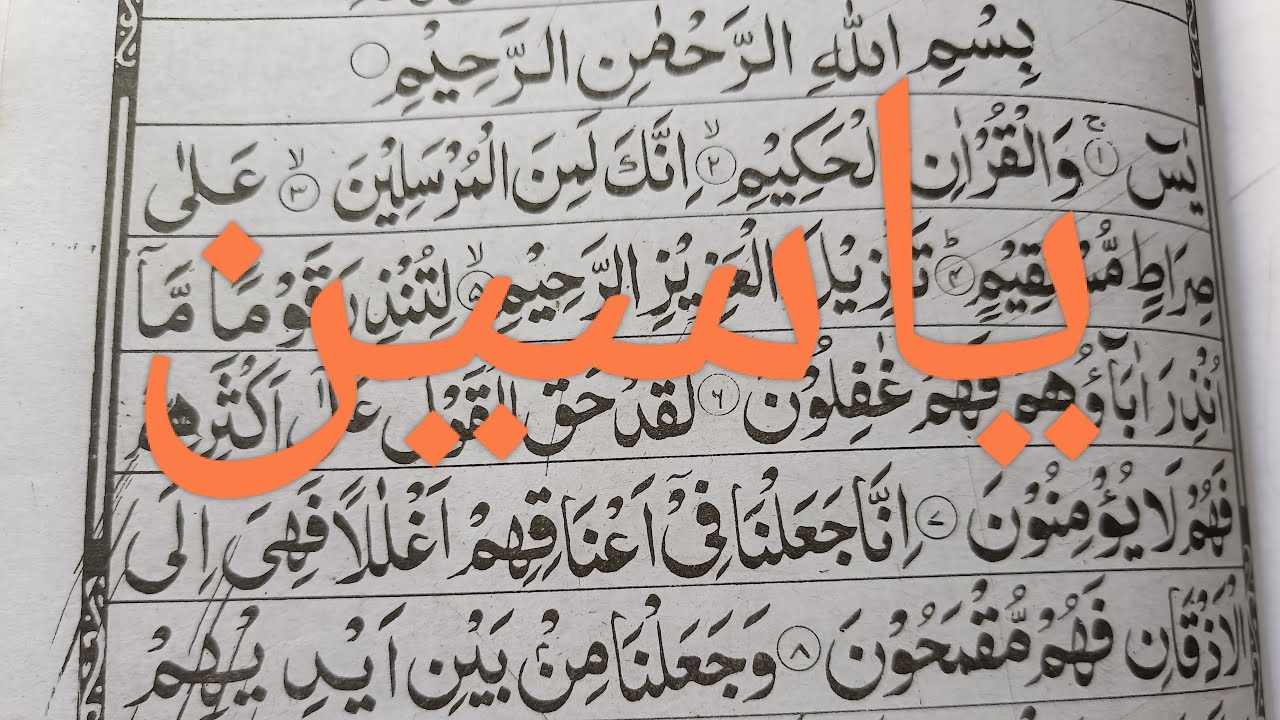 بِسْمِ اللهِ الرَّحْمٰنِ الرَّحِيْمِ
يٰسٓ ۚ﴿۱﴾ وَالْقُرْاٰنِ الْحَكِيْمِ ۙ﴿۲﴾ اِنَّكَ لَمِنَ الْمُرْسَلِيْنَ ۙ﴿۳﴾ عَلٰى
صِرَاطٍ مُّسْتَقِيْمٍ ؕ﴿۴﴾ تَنْزِيْلَ الْعَزِيْزِ الرَّحِيْمِ ۙ﴿۵﴾ لِتُنْذِرَ قَوْمًا مَّاۤ
اُنْذِرَ اٰبَآؤُهُمْ فَهُمْ غٰفِلُوْنَ ﴿۶﴾ لَقَدْ حَقَّ الْقَوْلُ عَلٰۤى اَكْثَرِهِمْ
فَهُمْ لَا يُؤْمِنُوْنَ ﴿۷﴾ اِنَّا جَعَلْنَا فِيْۤ اَعْنَاقِهِمْ اَغْلٰلًا فَهِيَ اِلَى
الْاَذْقَانِ فَهُمْ مُّقْمَحُوْنَ ﴿۸﴾ وَجَعَلْنَا مِنْۢ بَيْنِ اَيْدِيْهِمْ
ياسين